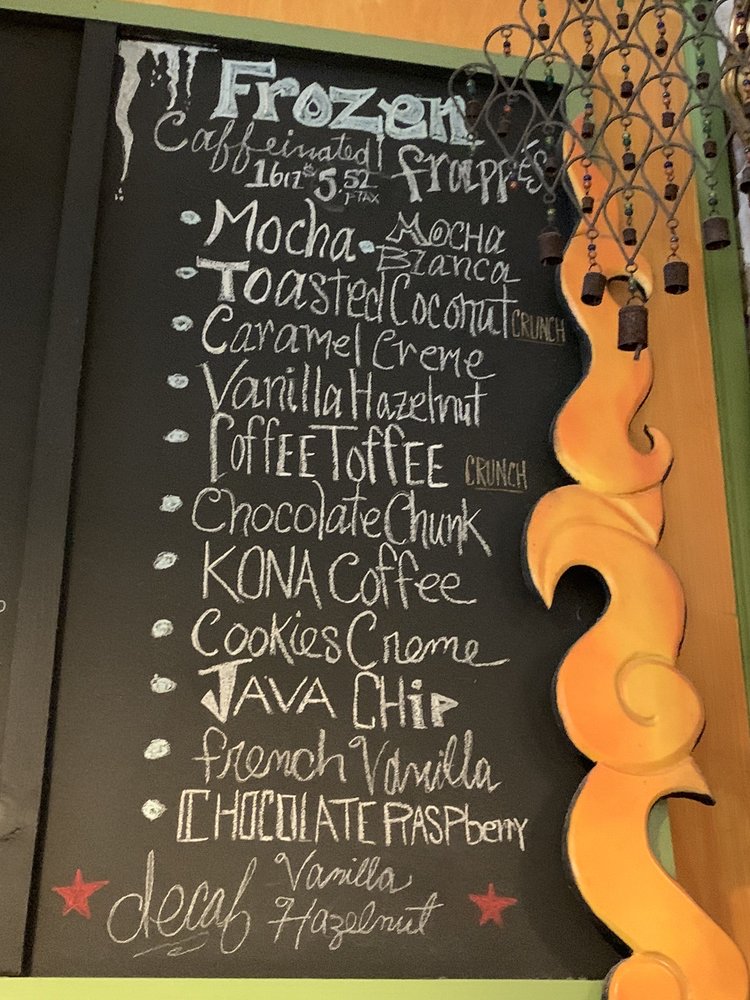 Frozen
Caffeinated frappés
16oz $5.52
+TAX
• Mocha • Mocha Blanca
• Toasted Coconut CRUNCH
• Caramel Creme
• Vanilla Hazelnut
• Coffee Toffee CRUNCH
• Chocolate Chunk
• KONA Coffee
• Cookies Creme
• JAVA CHiP
• french Vanilla
• CHOCOLATE RASPberry
decaf Vanilla Hazelnut